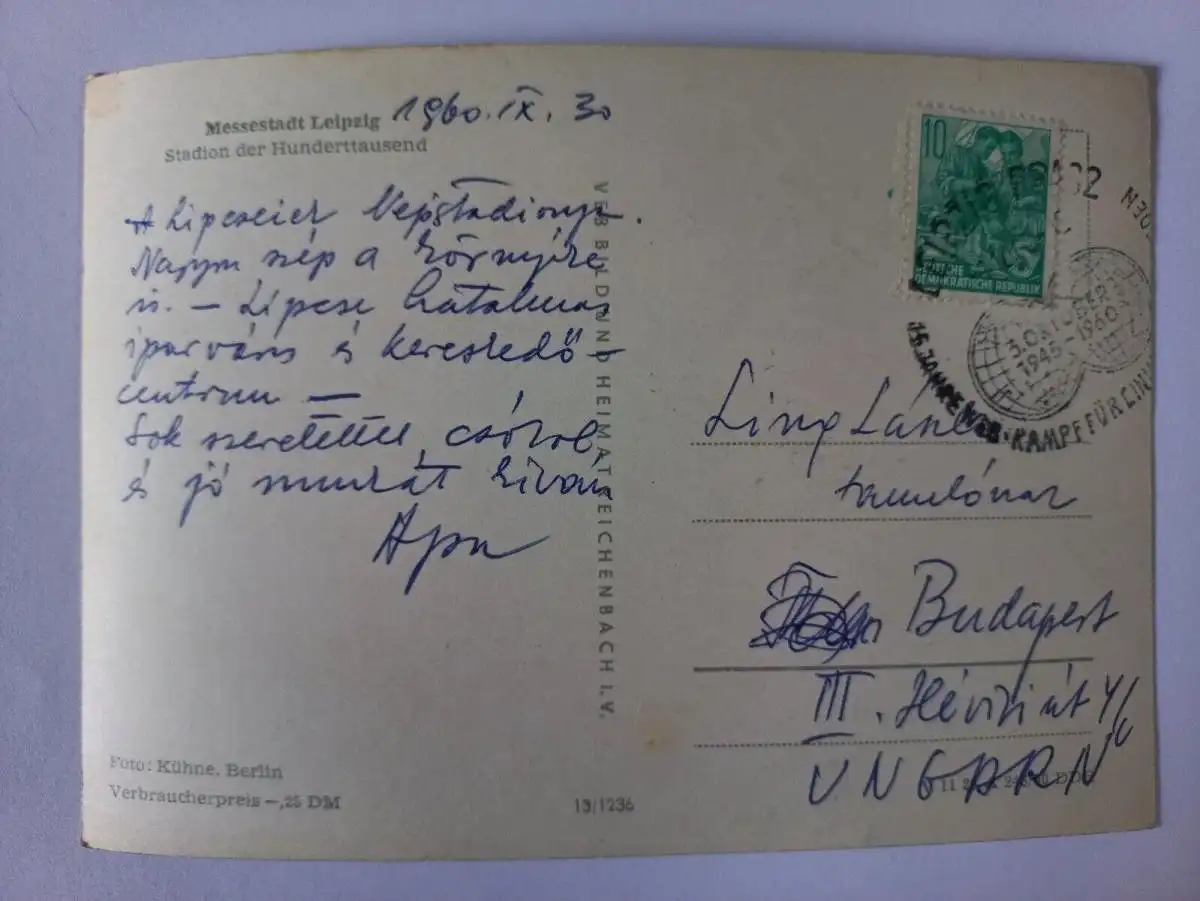 Messestadt Leipzig
Stadion der Hunderttausend
1960. IX. 30
A Lipcseiek Népstadionja.
Nagyon szép a környéke
is. – Lipcse hatalmas
iparváros és kereskedő-
centrum —
Sok szeretettel csókol
és jó munkát kíván
Apu
VEB BILD UND HEIMAT REICHENBACH I. V.
Foto: Kühne, Berlin
Verbraucherpreis –,25 DM
13/1236
10
5
DEUTSCHE
DEMOKRATISCHE REPUBLIK
3. OKTOBER
1945-1960
15 JAHRE
KAMPF FÜR EIN
László
tanulónak
Budapest
III. Hévizi út
UNGARN